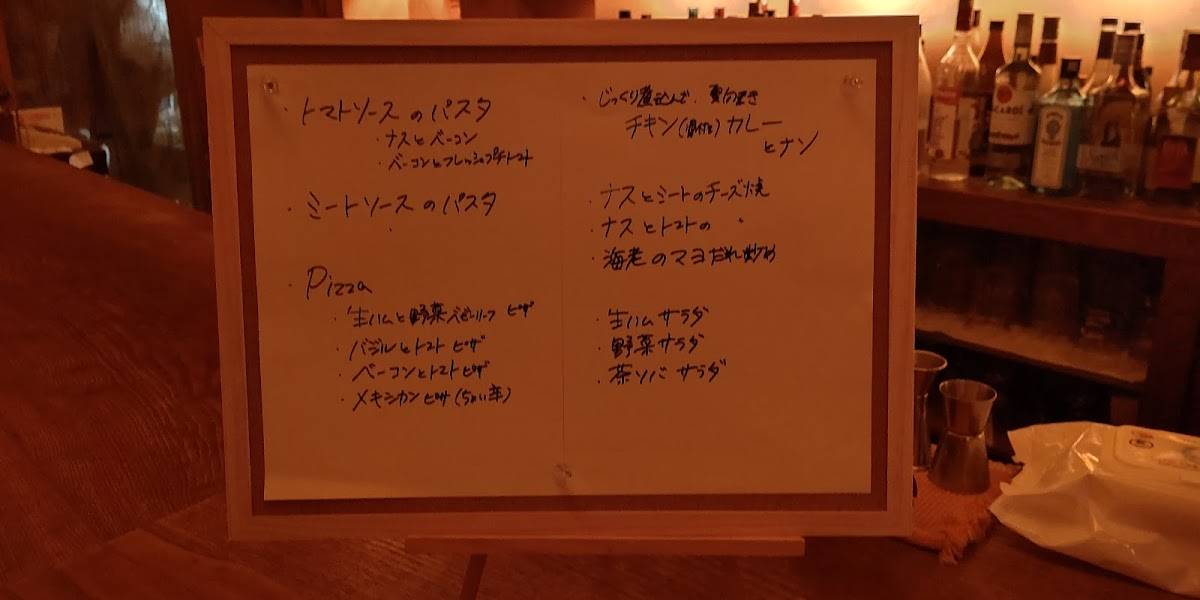 ・トマトソースのパスタ
・ナスとベーコン
・ベーコンとフレッシュプチトマト
・ミートソースのパスタ
・Pizza
・生ハムと野菜ベビーリーフ ピザ
・バジルとトマト ピザ
・ベーコンとトマト ピザ
・メキシカン ピザ (ちょい辛)
・じっくり煮込んだ
チキン(骨付き)カレー
とナン
・ナスとミートのチーズ焼
・ナスとトマトの 〃
・海老のマヨだれ炒め
・生ハムサラダ
・野菜サラダ
・茶ソバ サラダ
BACARDI